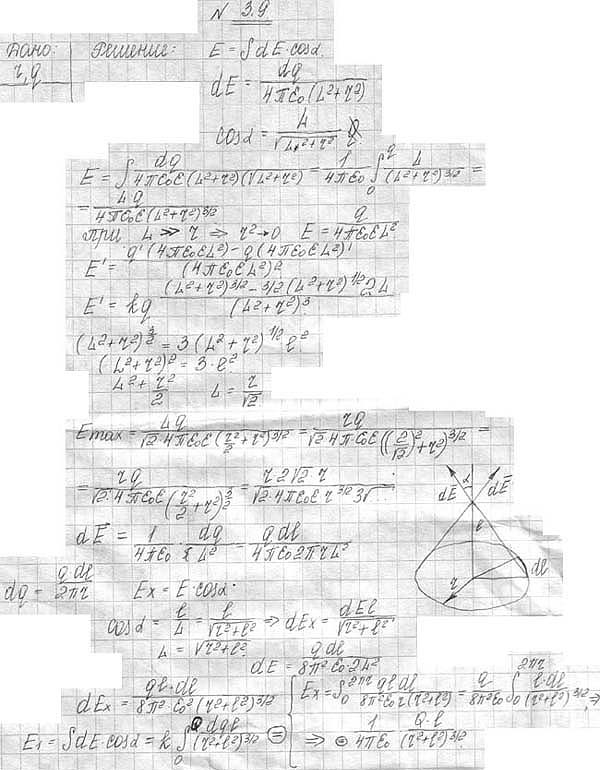 N 3.9
Дано: Решение: E = ∫dE·cosα
r, q
dE = dq / 4πε₀(L²+r²)
cosα = L / √(L²+r²)
E = ∫ dq / 4πε₀ε(L²+r²)(√L²+r²) = 1/4πε₀ ∫₀^q L / (L²+r²)^3/2 =
= Lq / 4πε₀ε(L²+r²)^3/2
при L ≫ r ⇒ r²→0 E = q / 4πε₀εL²
E' = q'(4πε₀εL²) − q(4πε₀εL²)' / (4πε₀εL²)²
E' = kq (L²+r²)^3/2 − 3/2(L²+r²)^1/2 2L / (L²+r²)³
(L²+r²)^3/2 = 3(L²+r²)^1/2 ℓ²
(L²+r²)² = 3·ℓ²
L² + r²/2 L = r/√2
Emax = Lq / √2·4πε₀ε(r²/2+r²)^3/2 = rq / √2 4πε₀ε((2/√2)²+r²)^3/2 =
= rq / √2·4πε₀ε(r²/2+r²)^3/2 = r2√2·r / √2·4πε₀ε r^3/2 3√...
dE α dE
ℓ
r dℓ
dE = 1/4πε₀ · dq / εL² = q dℓ / 4πε₀2πrL²
dq = q dℓ / 2πr Ex = E·cosα
cosα = ℓ/L = ℓ / √r²+ℓ² ⇒ dEx = dEℓ / √r²+ℓ²
L = √r²+ℓ²
dE = q dℓ / 8π²ε₀·2L²
dEx = qℓ·dℓ / 8π²ε₀²(r²+ℓ²)^3/2 { Ex = ∫₀^2πr qℓ dℓ / 8π²ε₀r(r²+ℓ²) = q / 8π²ε₀ ∫₀^2πr ℓ·dℓ / (r²+ℓ²)^3/2 ⇒
E₁ = ∫dE·cosα = k ∫₀^Q dqℓ / (r²+ℓ²)^3/2 ⊜ ⇒ ⊜ 1/4πε₀ Q·ℓ / (r²+ℓ²)^3/2